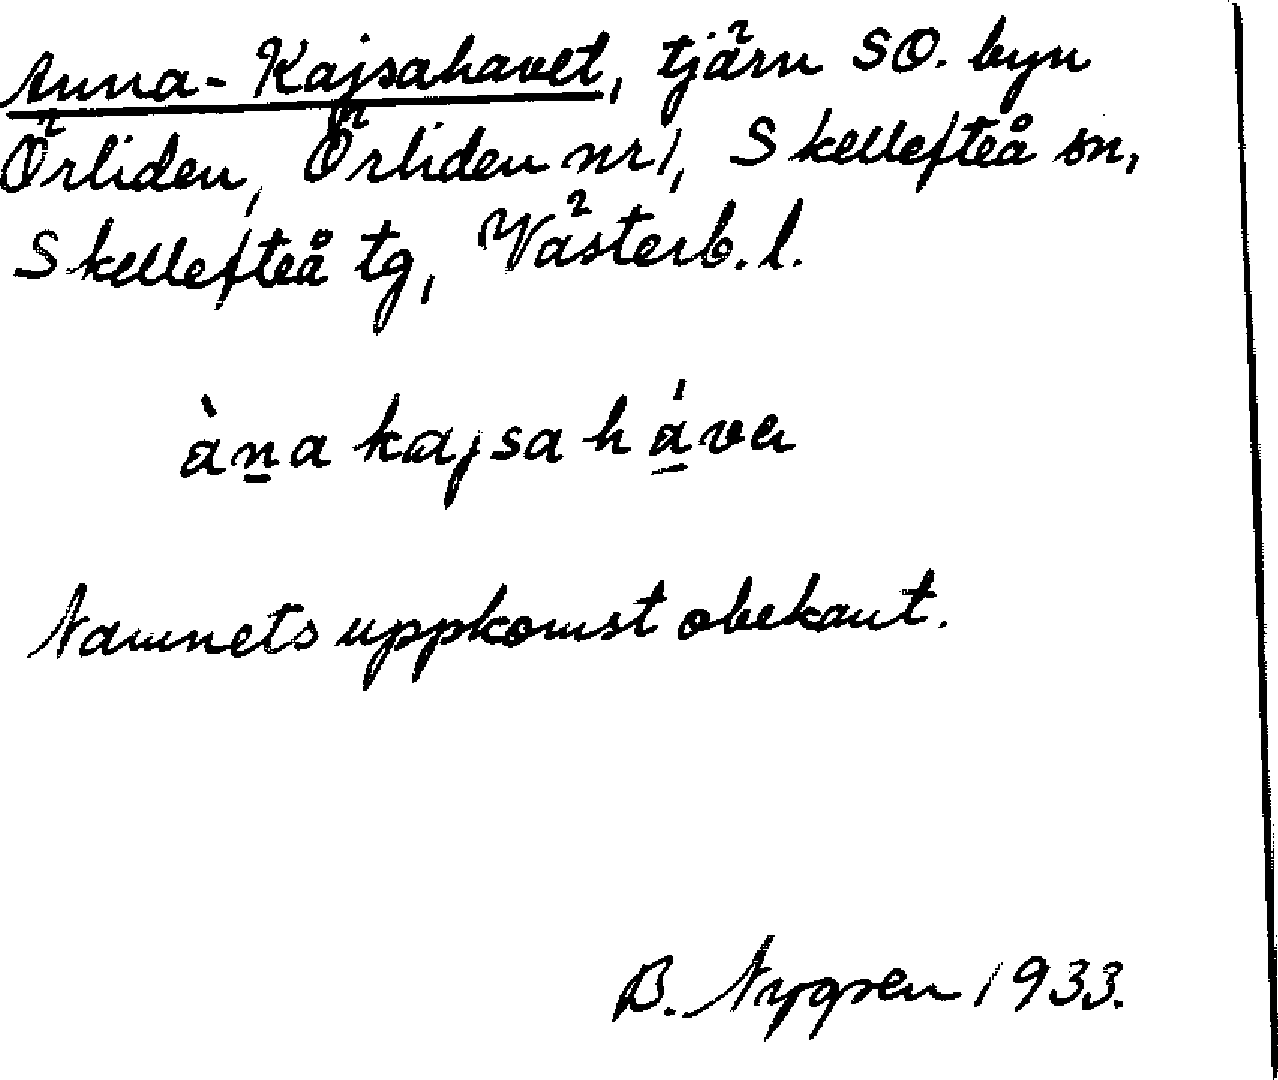 Anna-Kajsahavet, tjärn SO. byn
Örliden, Örliden nr 1, Skellefteå sn,
Skellefteå tg, Västerb. l.
àn̲a kajsa há̲va
Namnets uppkomst obekant.
B. Nygren 1933.